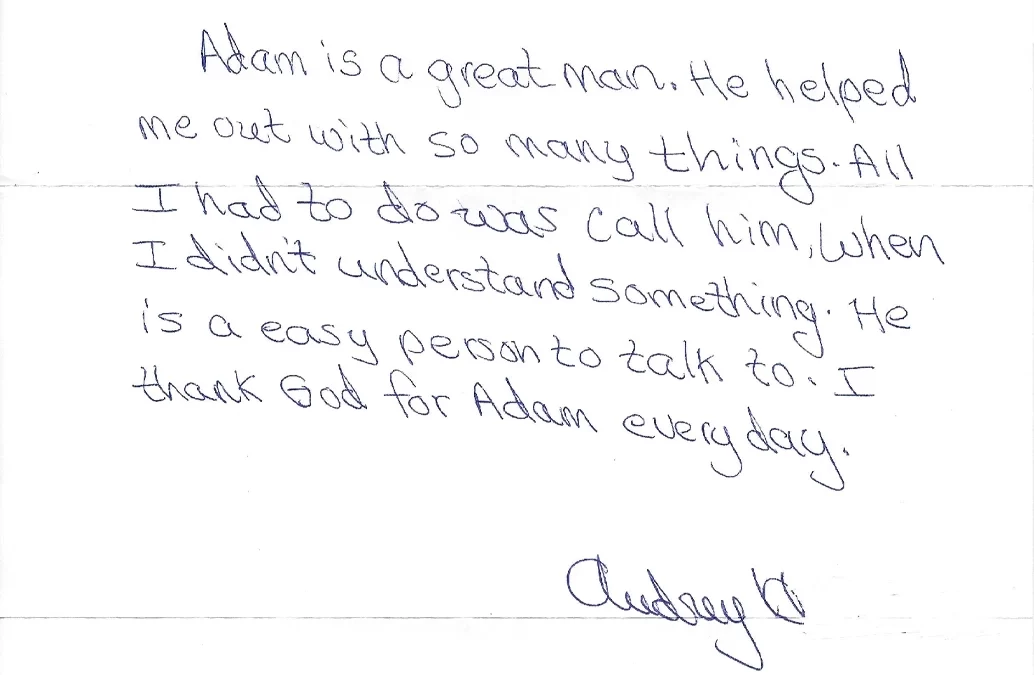 Adam is a great man. He helped
me out with so many things. All
I had to do was call him, when
I didn't understand something. He
is a easy person to talk to. I
thank God for Adam every day.
Audrey K